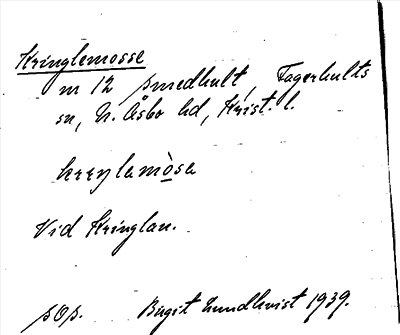 Kringlemosse
m 12 Smedhult, Fagerhults
sn, N. Åsbo hd, Krist. l.
Vid Kringlan.
Birgit Lundkvist 1939.